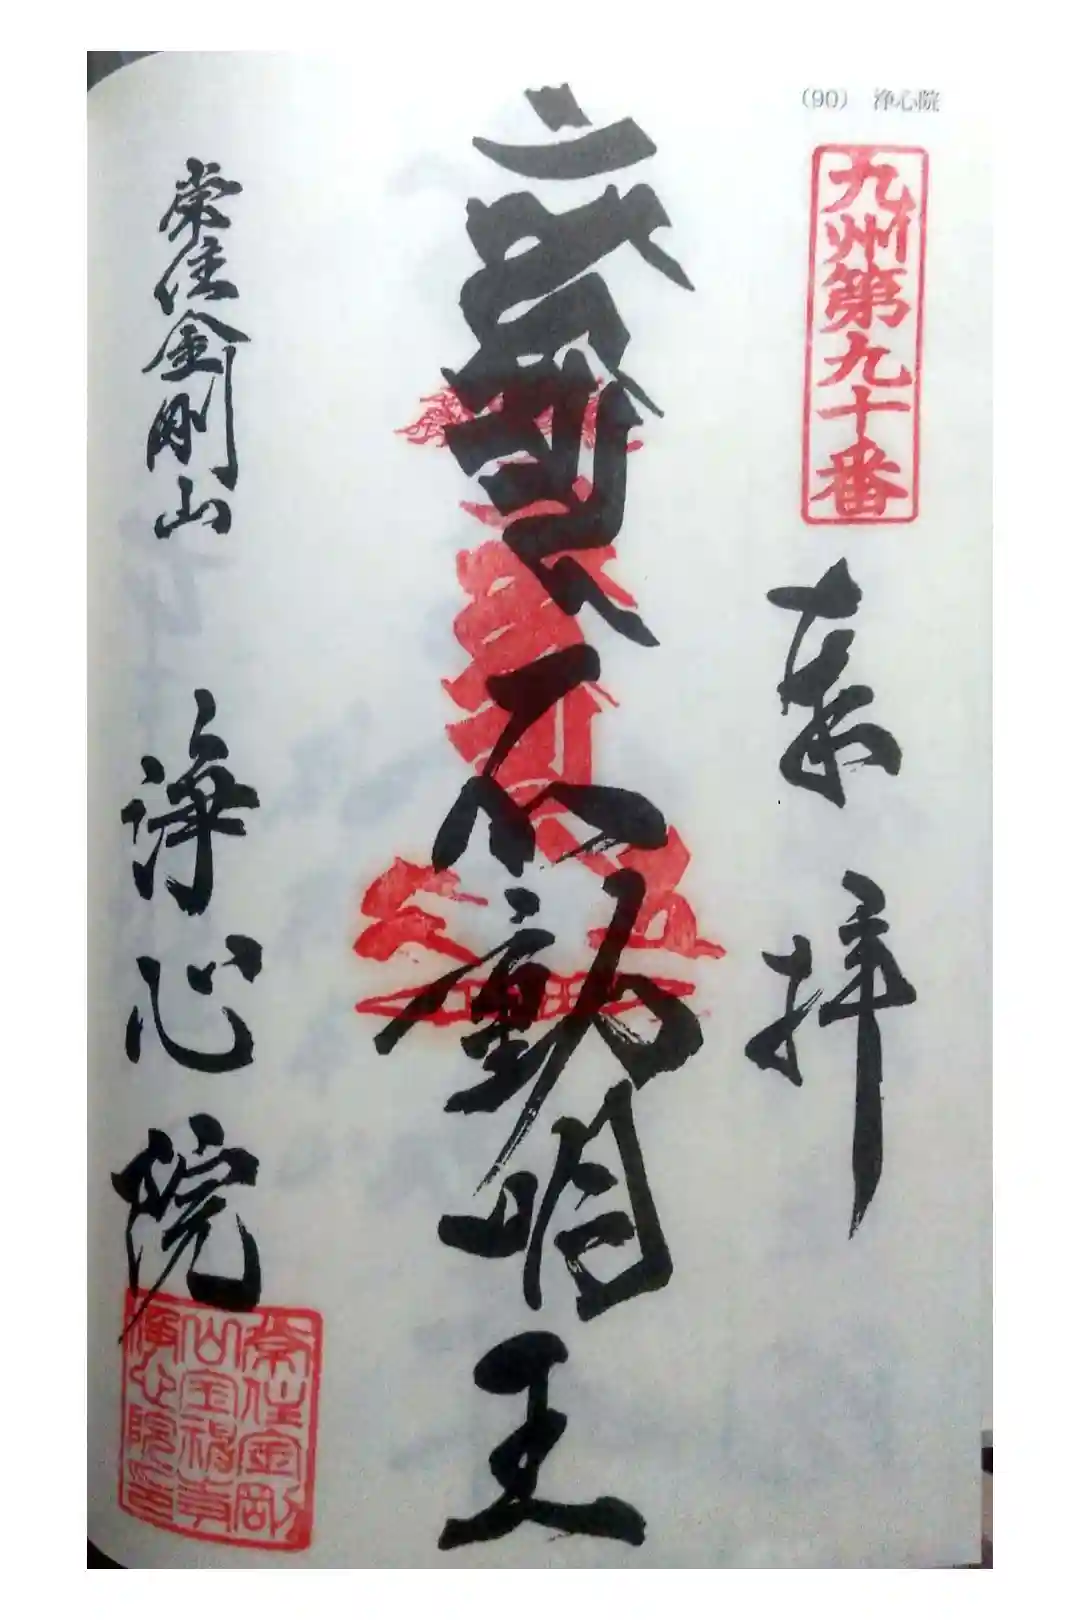 （90） 浄心院
九州第九十番
奉拝
不動明王
常住金剛山
浄心院
常住金剛
山宝福寺
浄心院印